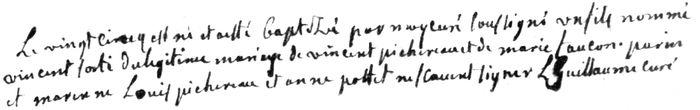 Le vingt cinq est né et a esté baptisé par moy curé soussigné un fils nommé
vincent sorti du legitime mariage de vincent pichereau et de marie faucon. parin
et mareine Louis pichereau et anne pottet ne scavent signer LGuillaume curé